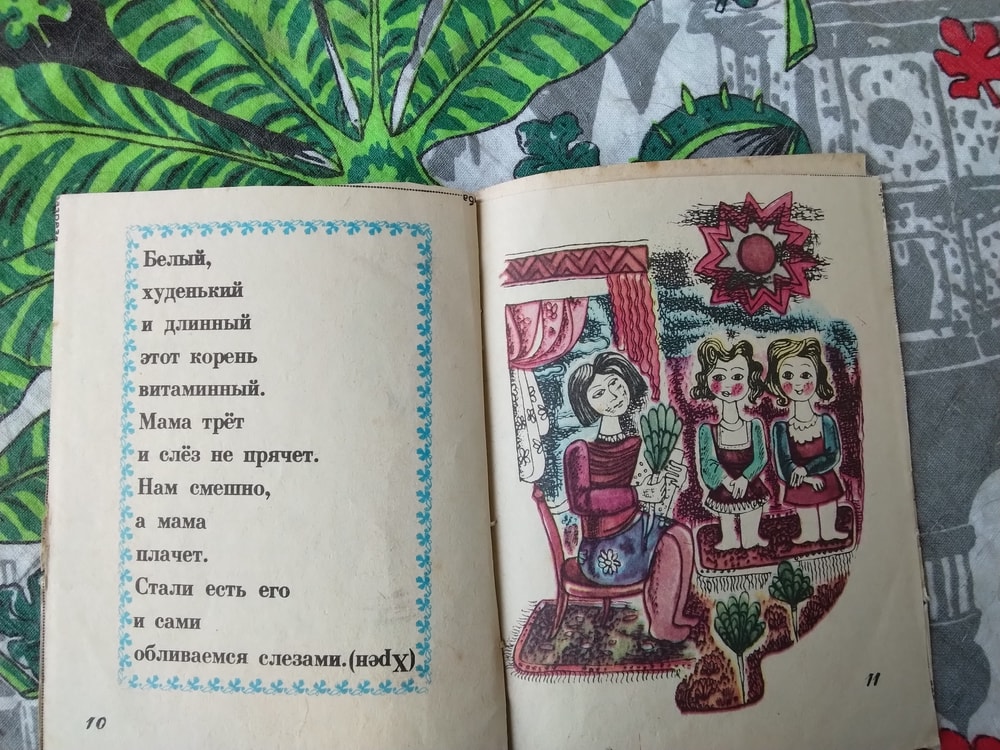 Белый,
худенький
и длинный
этот корень
витаминный.
Мама трёт
и слёз не прячет.
Нам смешно,
а мама
плачет.
Стали есть его
и сами
обливаемся слезами.(Хрен)
10
11